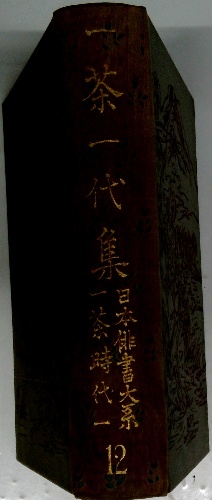 一茶一代集
日本俳書大系
一茶時代一
12